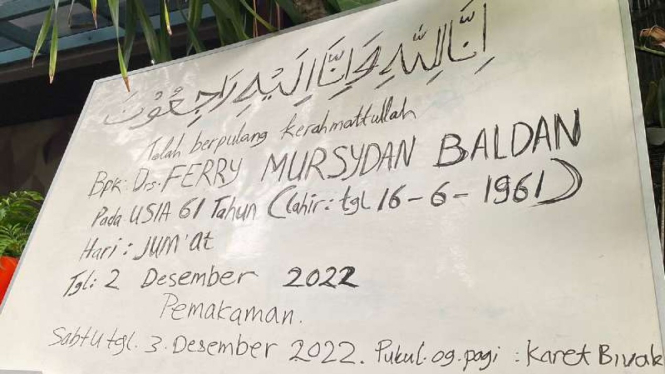 إِنَّا لِلَّهِ وَإِنَّا إِلَيْهِ رَاجِعُوْنَ
Telah berpulang kerahmattullah
Bpk: Drs. FERRY MURSYDAN BALDAN
Pada USIA 61 Tahun (lahir: tgl 16-6-1961)
Hari: JUM'at
Tgl: 2 Desember 2022
Pemakaman.
Sabtu tgl. 3. Desember 2022. Pukul. 09. pagi : Karet Bivak